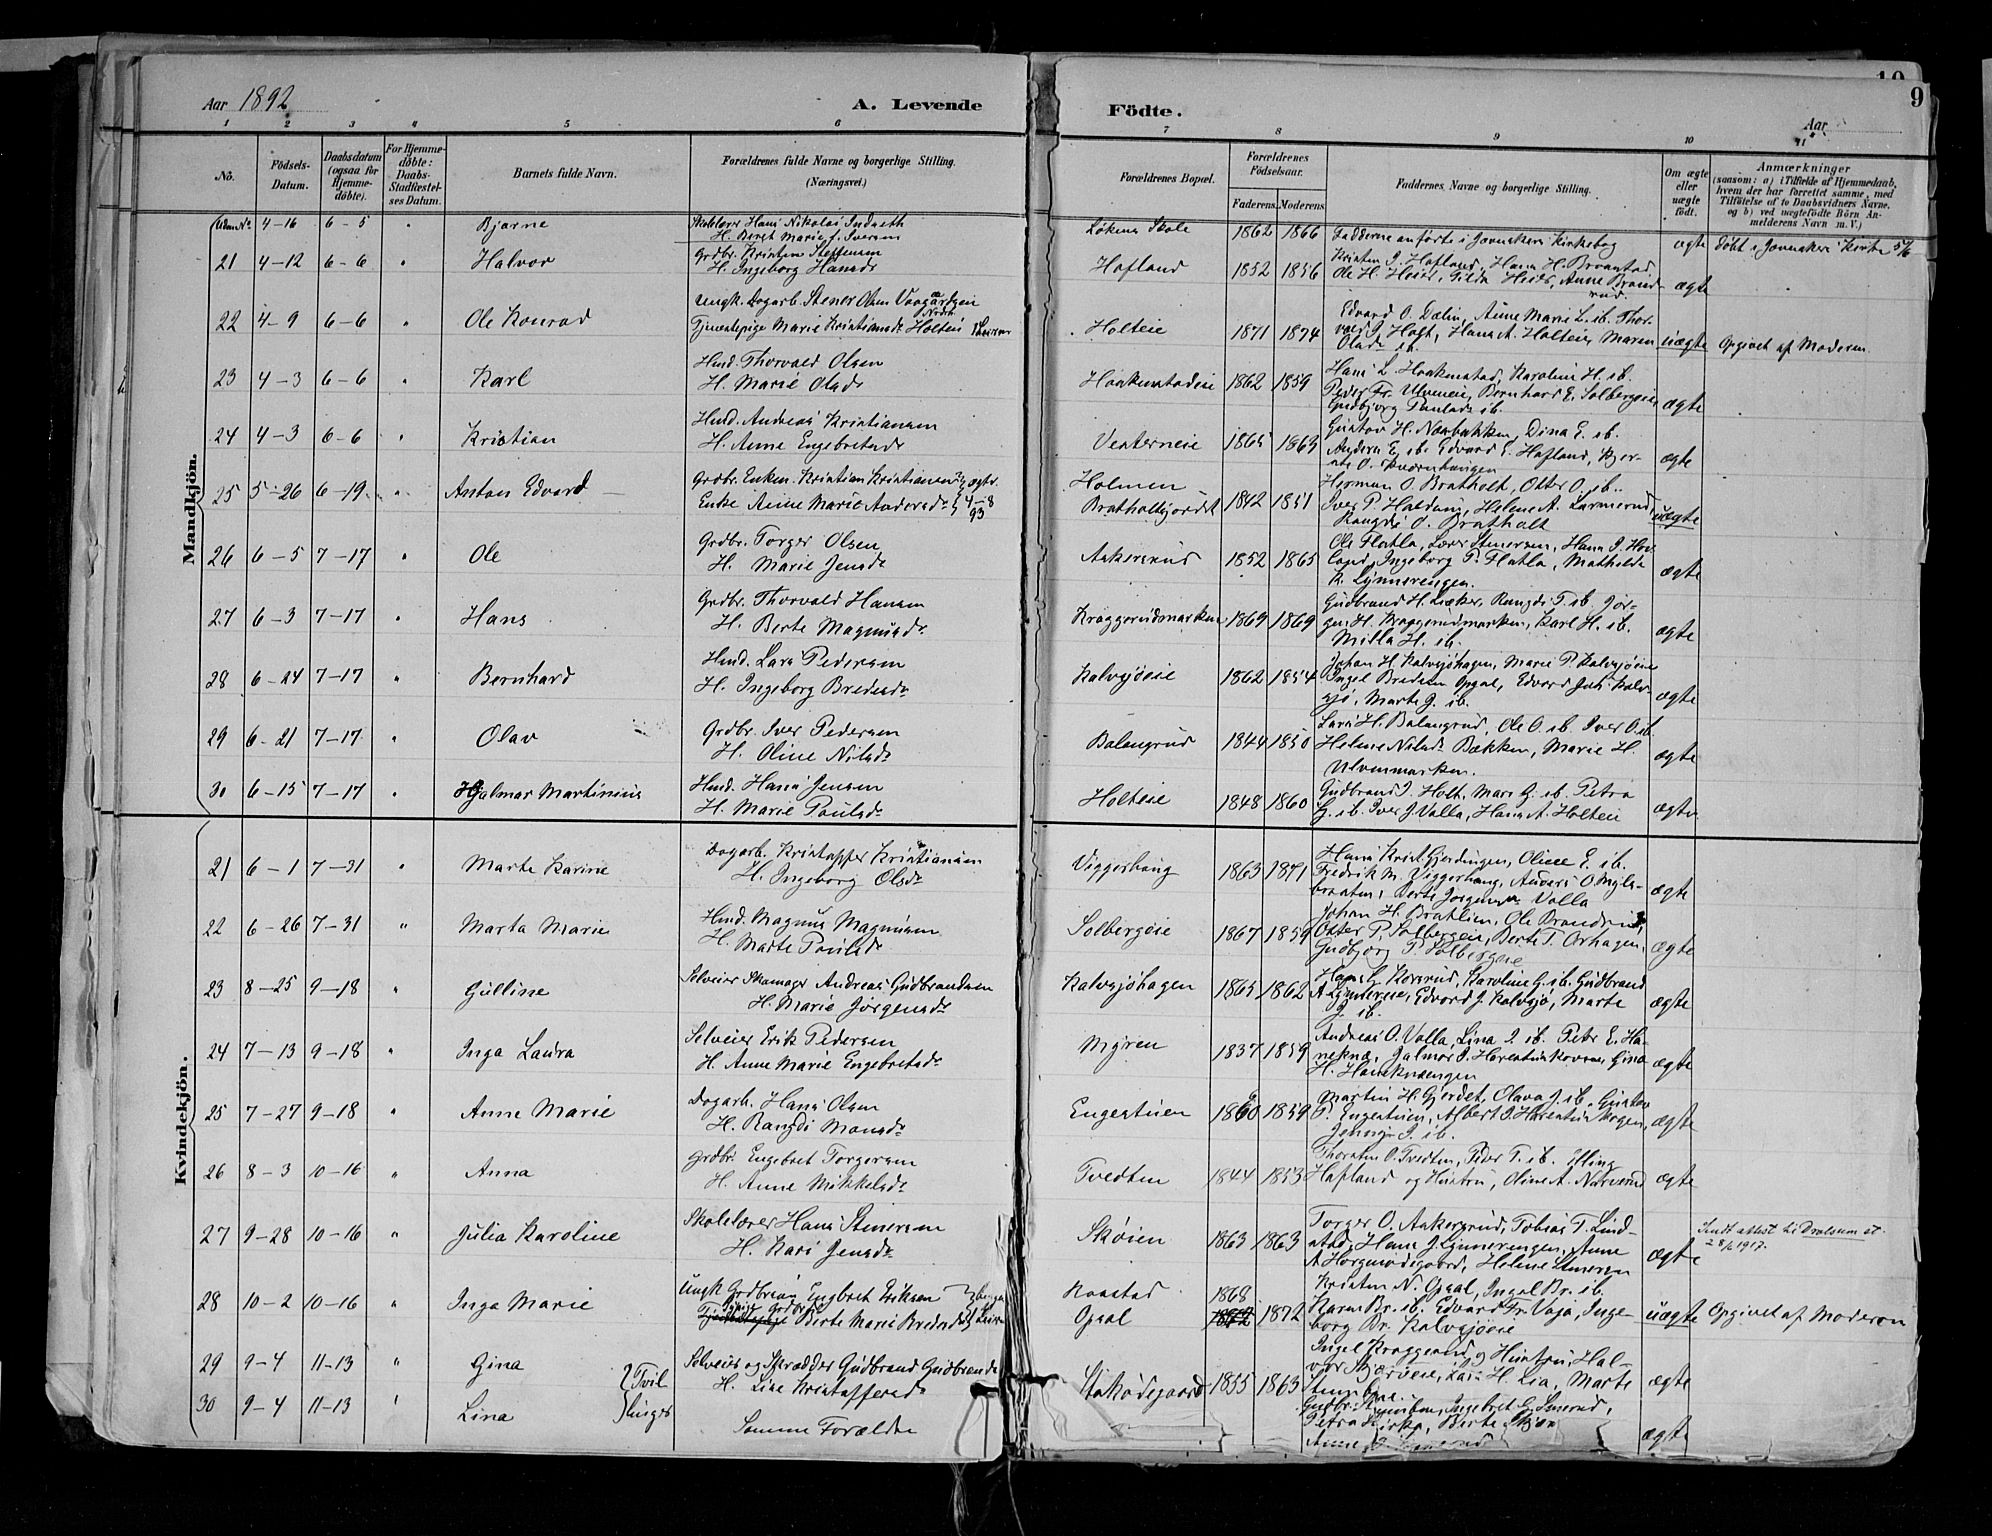 Aar 1892
A. Levende
Födte.
Aar
9
1 2 3 4 5 6 7 8 9 10 11
No.
Födsels-Datum.
Daabsdatum (ogsaa for Hjemme-döbte).
For Hjemme-döbte: Daabs-Stadfæstel-ses Datum.
Barnets fulde Navn.
Forældrenes fulde Navne og borgerlige Stilling.
(Næringsvei.)
Forældrenes Bopæl.
Forældrenes Födselsaar.
Faderens. Moderens.
Faddernes Navne og borgerlige Stilling.
Om ægte eller uægte födt.
Anmærkninger
(saasom: a) i Tilfælde af Hjemmedaab, hvem der har forrettet samme, med Tilföielse af to Daabsvidners Navne, og b) ved uægtefödte Börn An-melderens Navn m.V.)
Mandkjön.
Uden No. 4-16 6-5 " Bjarne
Skolelærer Hans Nikolai Indseth
H. Beret Marie f. Iversen
Løkens Skole 1862 1866 Fadderne anførte i Jevnakers Kirkebog ægte døbt i Jevnaker Kirke 5/6
21 4-12 6-6 " Halvor
Grdbr. Kristen Steffensen
H. Ingeborg Hansdr
Hofland 1852 1856 Kristen J. Hofland, Hans H. Braastad, ægte
22 4-9 6-6 " Ole Konrad
Ungk. Dagarb. Stener Olsen
Tjenestepige Marie Kristiansdr Holteie
Holteie 1871 1874 Edvard O. Dælin, Anne Marie L. ib. Thor-
vald J. Holt, Hans A. Holteie, Maren
Olsdr ib. uægte Opgivet af Moderen.
23 4-3 6-6 " Karl
Husmd. Thorvald Olsen
H. Marie Olsdr
Haakenstadeie 1862 1859 Hans L. Haakenstad, Karoline H. ib.
Peder Fr. Ulveneie, Bernhard E. Solbergeie,
Gudbjørg Paulsdr ib. ægte
24 4-3 6-6 " Kristian
Husmd. Andreas Kristiansen
H. Anne Engebretsdr
Vesterneie 1865 1863 Gustav H. Nærbakken, Dina E. ib.
Anders E. ib. Edvard E. Hafland, ægte
25 5-26 6-19 " Anton Edvard
Grdbr. Enkem. Kristian Kristiansen } ægtev.
Enke Anne Marie Andersdr } 4-8 93
Holmen
Bratholtjordet 1842 1851 Herman O. Bratholt, Otter O. ib.
Iver P. Haldum, Helene A. Larmerud,
Rangdi O. Bratholt uægte
26 6-5 7-17 " Ole
Grdbr. Torger Olsen
H. Marie Jensdr
Aakersrud 1852 1865 Ole Flatla, Lars Stenersen, Hans J. Hov-
land, Ingeborg P. Flatla, Mathilde
K. Lynnerengen. ægte
27 6-3 7-17 " Hans
Grdbr. Thorvald Hansen
H. Berte Magnusdr
Kraggerudsmarken 1869 1869 Gudbrand H. Liaker, Rangdi T. ib. Jør-
gen H. Kraggerudmarken, Karl H. ib.
Milla H. ib. ægte
28 6-24 7-17 " Bernhard
Husmd. Lars Pedersen
H. Ingeborg Bredesdr
Kalvsjøeie 1862 1854 Johan H. Kalvsjøhagen, Marie P. Kalvsjøeie
Ingel Bredesen Opsal, Edvard Joh. Kalv-
sjø, Marte G. ib. ægte
29 6-21 7-17 " Olav
Grdbr. Iver Pedersen
H. Oline Nilsdr
Balangrud 1844 1850 Lars H. Balangrud, Ole O. ib. Iver O. ib.
Helene Nilsdr Bækken, Marie H.
Ulvenmarken. ægte
30 6-15 7-17 " Hjalmar Martinius
Husmd. Hans Jensen
H. Marie Paulsdr
Holteie 1848 1860 Gudbrand J. Holt, Mari G. ib. Petra
G. ib. Iver J. Valla, Hans A. Holteie ægte
Kvindekjön.
21 6-1 7-31 " Marte Karine
Dagarb. Kristoffer Kristiansen
H. Ingeborg Olsdr
Viggerhaug 1863 1871 Hans Krist. Gjerdingen, Oline E. ib.
Fredrik M. Viggerhaug, Anders O. Myls-
braaten, Berte Jørgensen Valla ægte
22 6-26 7-31 " Marta Marie
Husmd. Magnus Magnusen
H. Marte Paulsdr
Solbergeie 1867 1859 Johan H. Bratlien, Ole Brandrud,
Otter P. Solbergeie, Berte T. Orhagen,
Gudbjørg P. Solbergeie ægte
23 8-25 9-18 " Gulline
Selveier Skomager Andreas Gudbrandsen
H. Marie Jørgensdr
Kalvsjøhagen 1865 1862 Hans G. Korsrud, Karoline G. ib. Gudbrand
A. Lynnereie, Edvard J. Kalvsjø, Marte
J. ib. ægte
24 7-13 9-18 " Inga Laura
Selveier Erik Pedersen
H. Anne Marie Engebretsdr
Myren 1837 1859 Andreas O. Valla, Lina J. ib. Petr E. Ha-
neknæ, Jalmar J. Horentuskoven, Gina
H. Haneknæengen ægte
25 7-27 9-18 " Anne Marie
Dagarb. Hans Olsen
H. Rangdi Monsdr
Engestuen 1860 1859 Martin H. Gjerdet, Olava J. ib. Gustav
P. Engestuen, Albert J. Horentuskogen,
Jenny J. ib. ægte
26 8-3 10-16 " Anna
Grdbr. Engebret Torgersen
H. Anne Mikkelsdr
Tvedten 1844 1853 Thorsten O. Tvedten, Peder T. ib. Elling
Hafland og Hustru, Oline A. Narverud ægte
27 9-28 10-16 " Julia Karoline
Skolelærer Hans Stenersen
H. Kari Jensdr
Skøien 1863 1863 Torger O. Aakersrud, Tobias T. Lind-
stad, Hans J. Lynnerengen, Anne
A. Horgenødegaard, Helene Stenersen ægte Sendt attest til Dralsum st. 28/6 1917.
28 10-2 10-16 " Inga Marie
Ungk. Grdbrsøn Engebret Eriksen
Pige Grdbr. Berte Marie Bredesdr
Raastad
Opsal 1868 1872 Kristen N. Opsal, Ingel Br. ib.
Karen Br. ib. Edvard Fr. Vaja, Inge-
borg Br. Kalvsjøeie uægte Opgivet af Moderen
29 9-4 11-13 " Gina } Tvil
Selveier og Skrædder Gudbrand Gudbrandsen
H. Line Kristoffersdr
Stakødegaard 1855 1863 Ingel Kraggerud og Hustru, Hal-
vor Skjerveie, Lars H. Lia, Marte
Stenbone. ægte
30 9-4 11-13 " Lina } linger
Samme Forældre
Petra Kirka, Berte Skjær
ægte